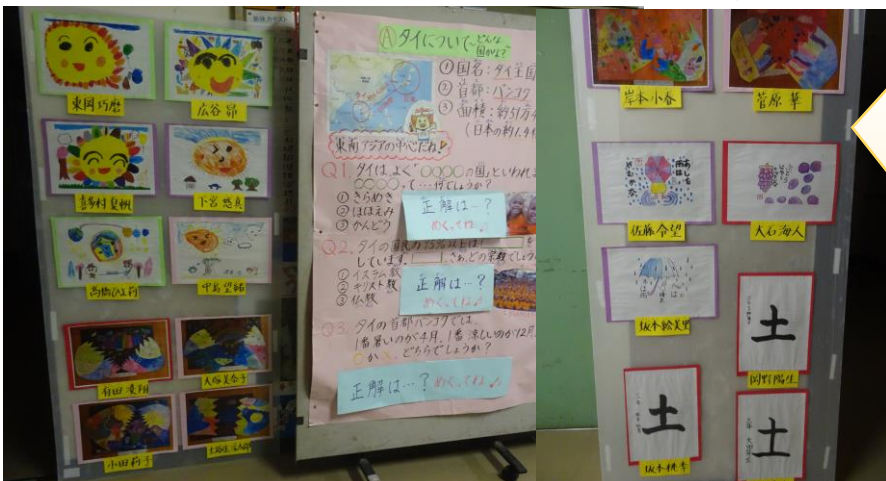 東岡巧磨
広谷 昴
喜多村夏帆
下宮悠真
高橋ひより
中島望緒
有田凌翔
大塚美奈子
小田莉子
Ⓐタイについて~どんな国かな?
① 国名:タイ王国
② 首都:バンコク
③ 面積:約51万
(日本の約1.4
東南アジアの中心だね!
Q1. タイは、よく“○○○○の国”といわれ
○○○○って…何でしょうか?
① きらめき
② ほほえみ
③ かんどう
正解は…?
めくってね♪
Q2. タイの国民の95%以上は
しています。さぁ、どの宗教でしょう
① イスラム教
② キリスト教
③ 仏教
正解は…?
めくってね♪
Q3. タイの首都バンコクでは、
1番暑いのが4月、1番涼しいのが12月
○か×、どちらでしょうか?
正解は…?めくってね♪
岸本小春
菅原 華
佐藤令望
大石海人
坂本絵美里
土
岡野陽生
土
坂本桃季
土